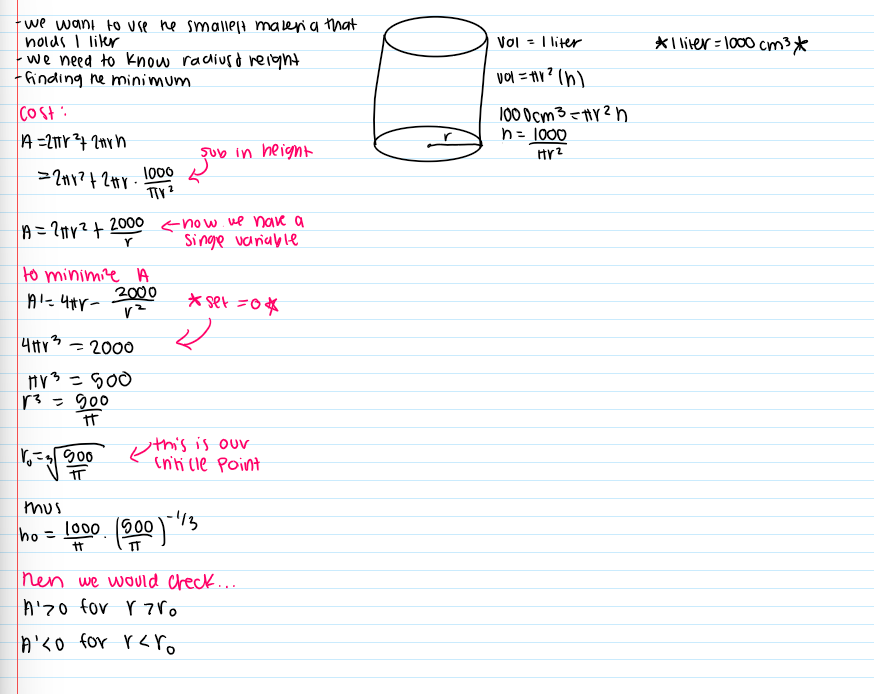 - we want to use the smallest material that
holds 1 liter
- we need to know radius & height
- finding the minimum
Vol = 1 liter
*1 liter = 1000 cm³*
vol = πr² (h)
1000cm³ = πr² h
h = 1000/πr²
r
cost:
A = 2πr² + 2πrh
= 2πr² + 2πr · 1000/πr²
sub in height
A = 2πr² + 2000/r
← now we have a
singe variable
to minimize A
A' = 4πr - 2000/r²
*set = 0*
4πr³ = 2000
πr³ = 500
r³ = 500/π
r₀ = ³√(500/π)
this is our
criticle point
thus
h₀ = 1000/π · (500/π)^-1/3
then we would check...
A' > 0 for r > r₀
A' < 0 for r < r₀